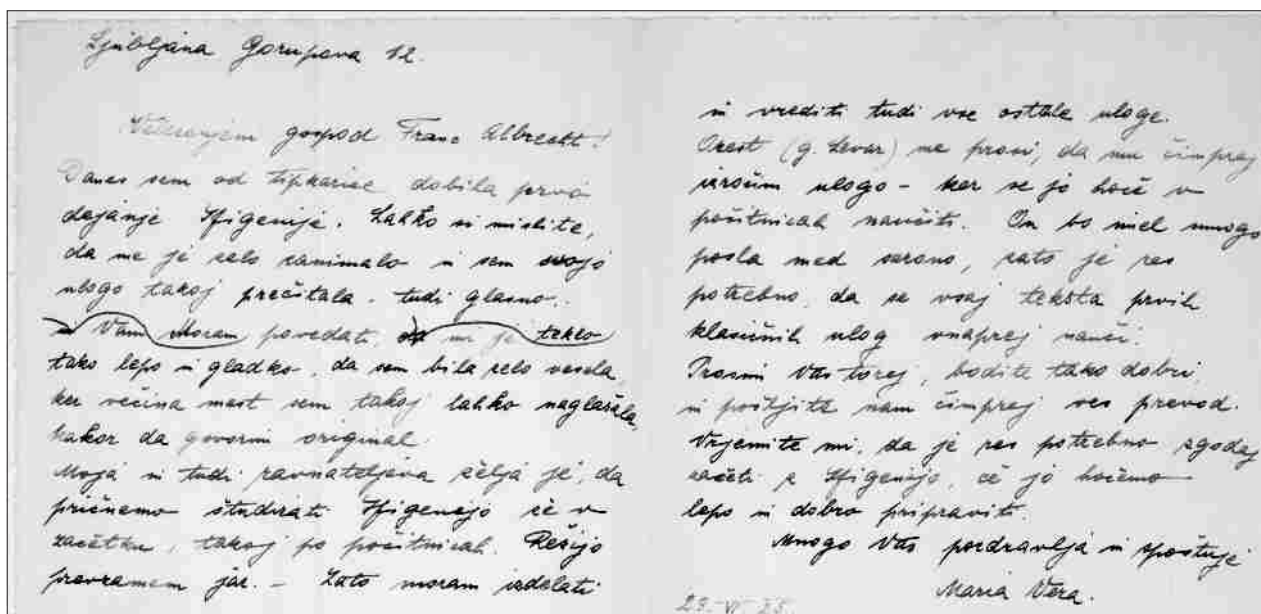 Ljubljana Gorupova 12.
Velecenjeni gospod Franc Albrecht!
Danes sem od tipkarice dobila prvo
dejanje Ifigenije. Lahko si mislite,
da me je zelo zanimalo in sem svojo
ulogo takoj prečitala. tudi glasno.
Vam Moram povedati, da mi je teklo
tako lepo in gladko, da sem bila zelo vesela,
ker večina mest sem takoj lahko naglašala,
kakor da govorim original.
Moja in tudi ravnateljeva želja je, da
pričnemo študirati Ifigenijo že v
začetku, takoj po počitnicah. Režijo
prevzamem jaz. – Zato moram izdelati
in vrediti tudi vse ostale uloge.
Orest (g. Levar) me prosi, da mu čimprej
izročim ulogo – ker se jo hoče v
počitnicah naučiti. On bo imel mnogo
posla med sezono, zato je res
potrebno, da se vsaj teksta prvih
klasičnih ulog vnaprej nauči.
Prosim Vas torej, bodite tako dobri,
in pošljite nam čimprej ves prevod.
Verjemite mi, da je res potrebno zgodaj
začeti z Ifigenijo, če jo hočemo
lepo in dobro pripraviti.
Mnogo Vas pozdravlja in spoštuje
Maria Vera.
29. VI. 25.